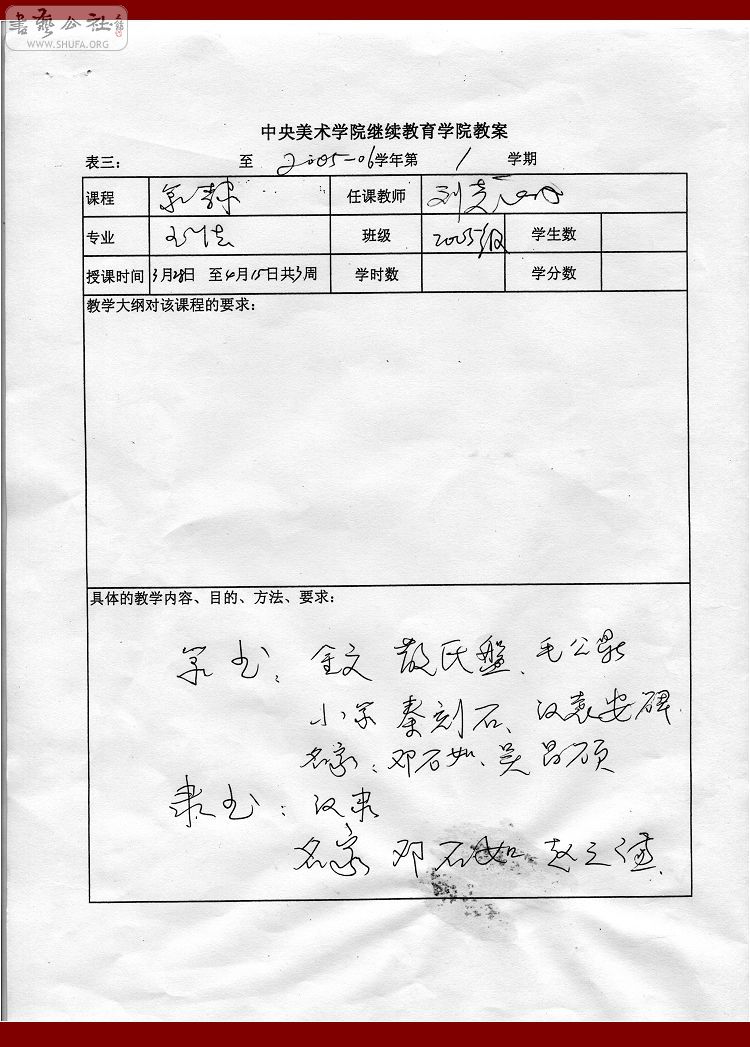 書藝公社
WWW.SHUFA.ORG
中央美术学院继续教育学院教案
表三： 至 2005-06学年第 1 学期
课程 篆隶 任课教师 刘
专业 书法 班级 2005级 学生数
授课时间 3月28日 至4月15日共3周 学时数 学分数
教学大纲对该课程的要求：
具体的教学内容、目的、方法、要求：
篆书： 金文 散氏盤、毛公鼎
小篆 秦刻石、汉袁安碑
名家：邓石如、吴昌硕
隶书：汉隶
名家 邓石如 赵之谦